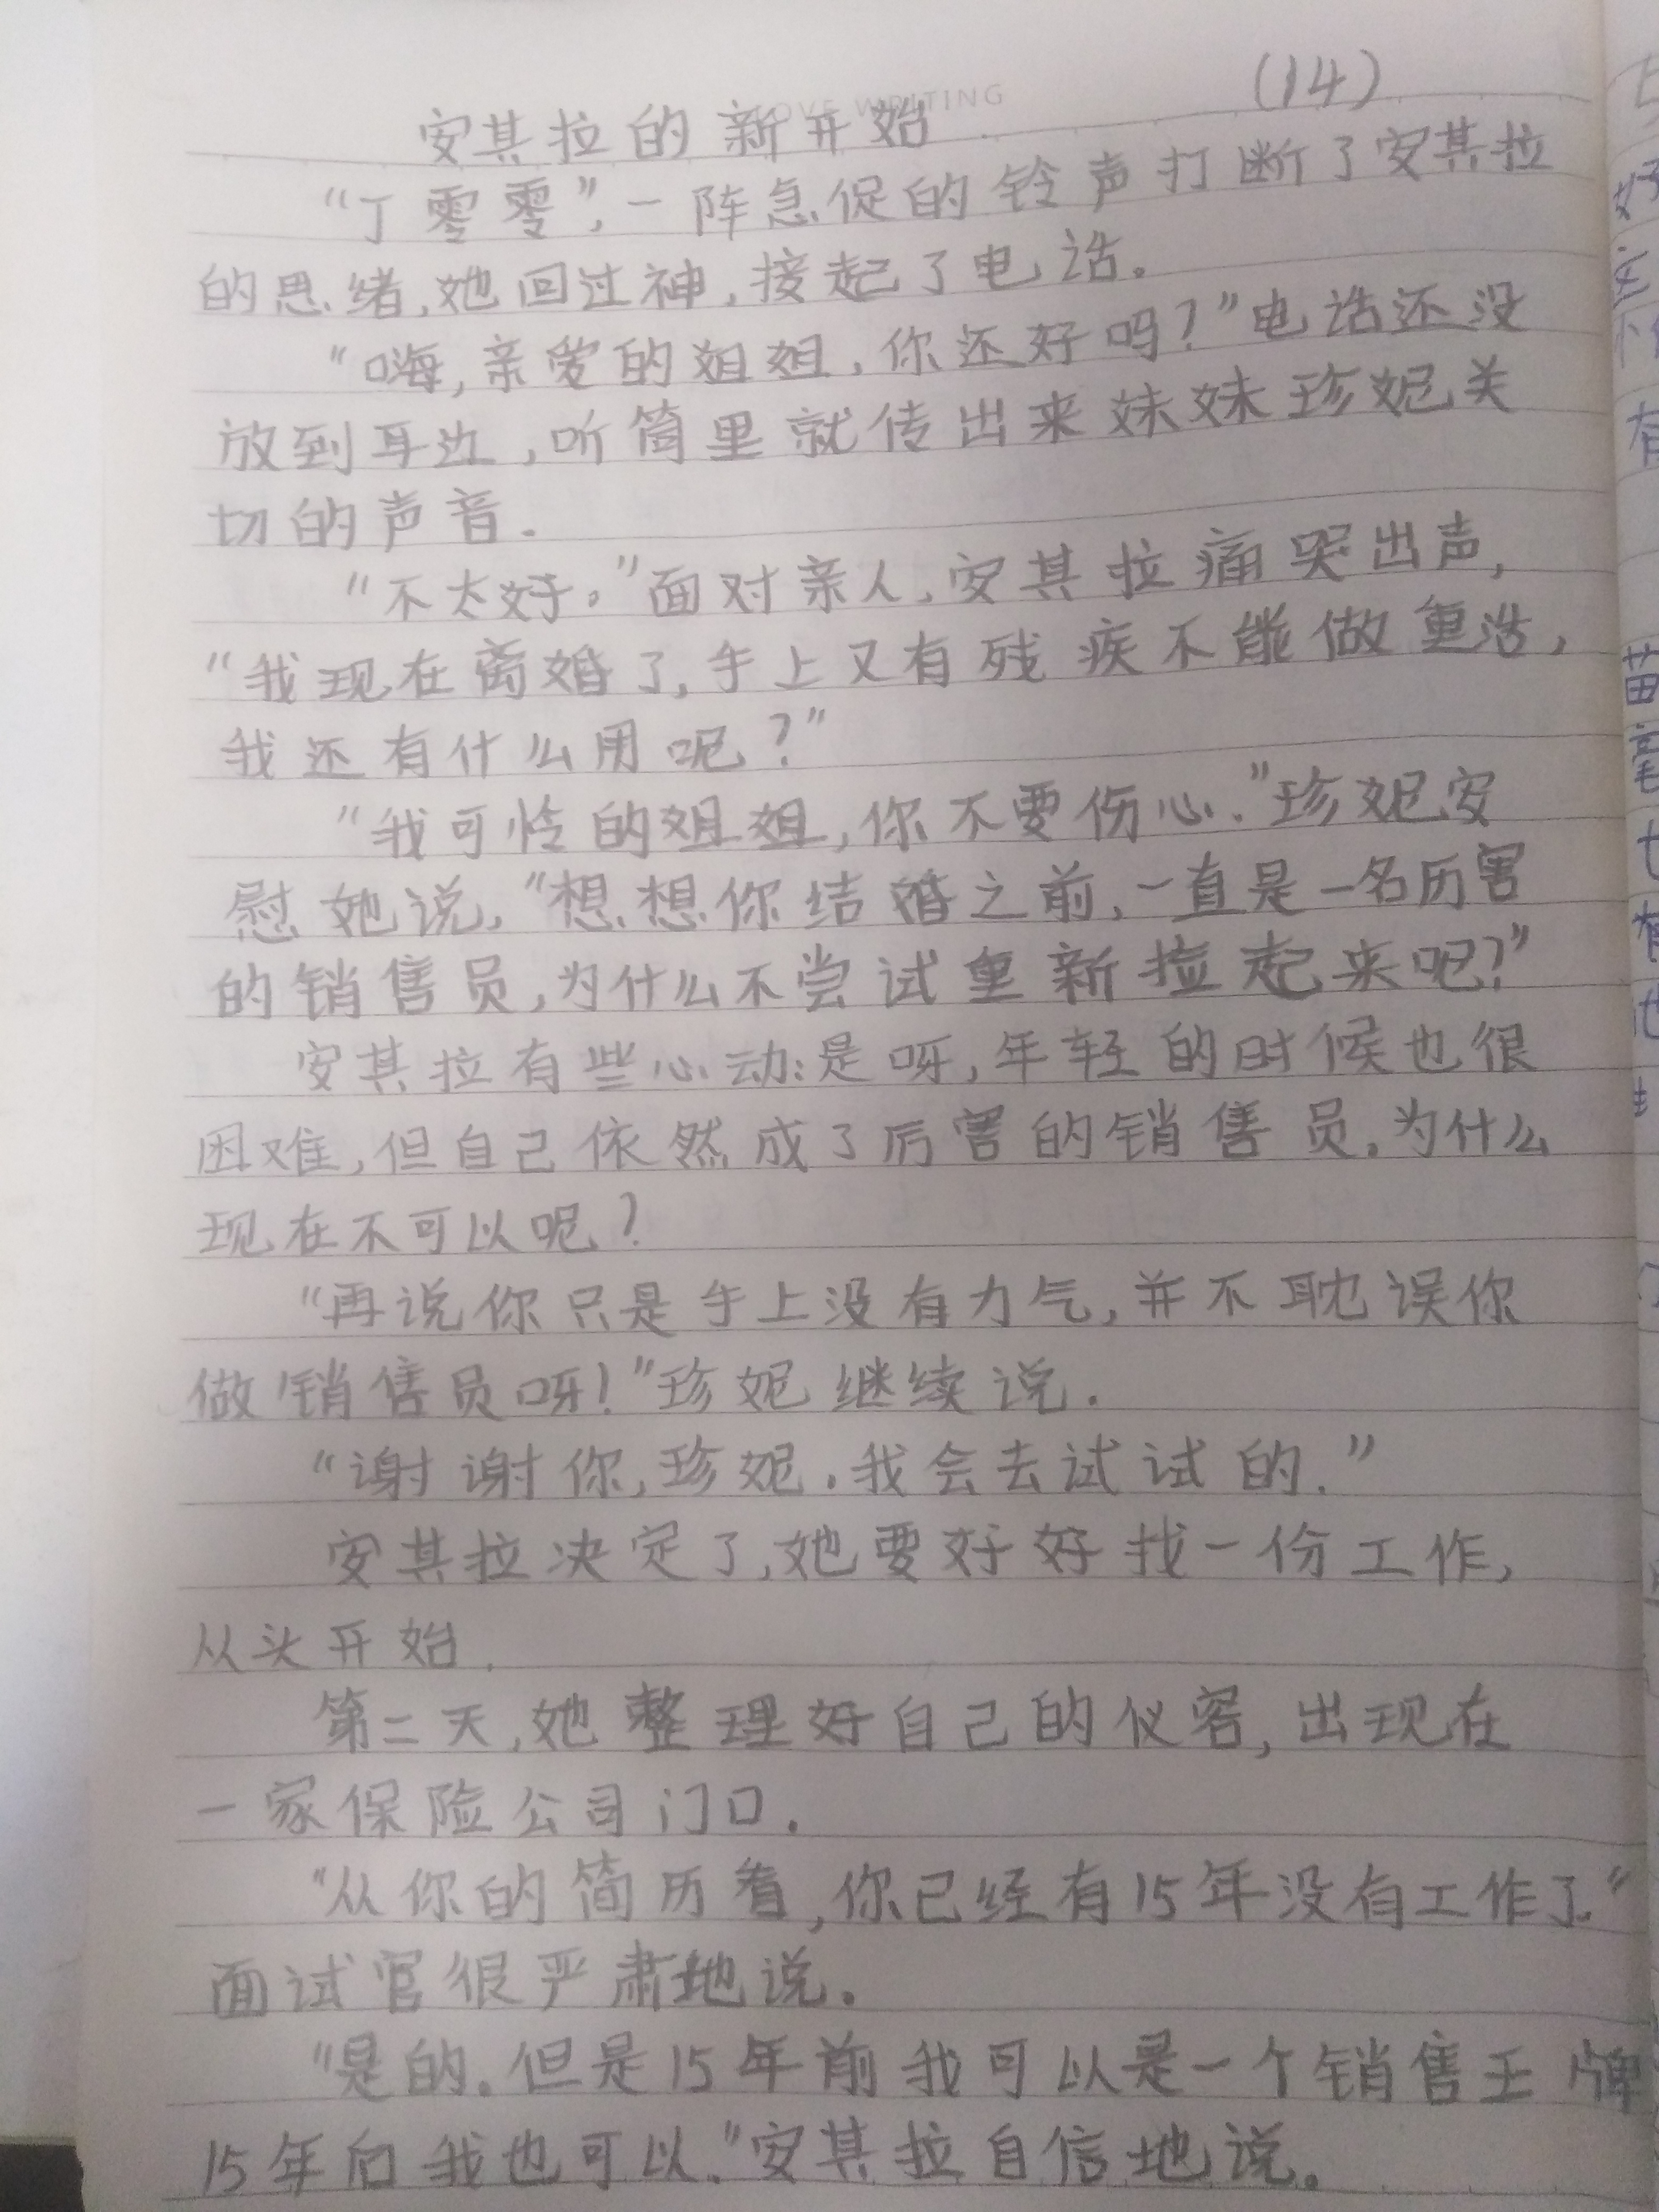 LOVE WRITING
(14)
安其拉的新开始
“丁零零”,一阵急促的铃声打断了安其拉
的思绪,她回过神,接起了电话。
“嗨,亲爱的姐姐,你还好吗?”电话还没
放到耳边,听筒里就传出来妹妹珍妮关
切的声音.
“不太好。”面对亲人,安其拉痛哭出声,
“我现在离婚了,手上又有残疾不能做重活,
我还有什么用呢?”
“我可怜的姐姐,你不要伤心.”珍妮安
慰她说,“想想你结婚之前,一直是一名历害
的销售员,为什么不尝试重新捡起来呢?”
安其拉有些心动:是呀,年轻的时候也很
困难,但自己依然成了厉害的销售员.为什么
现在不可以呢?
“再说你只是手上没有力气,并不耽误你
做销售员呀!”珍妮继续说.
“谢谢你,珍妮.我会去试试的.”
安其拉决定了,她要好好找一份工作,
从头开始.
第二天,她整理好自己的仪容,出现在
一家保险公司门口.
“从你的简历看,你已经有15年没有工作了.”
面试官很严肃地说.
“是的.但是15年前我可以是一个销售王牌
15年后我也可以.”安其拉自信地说.